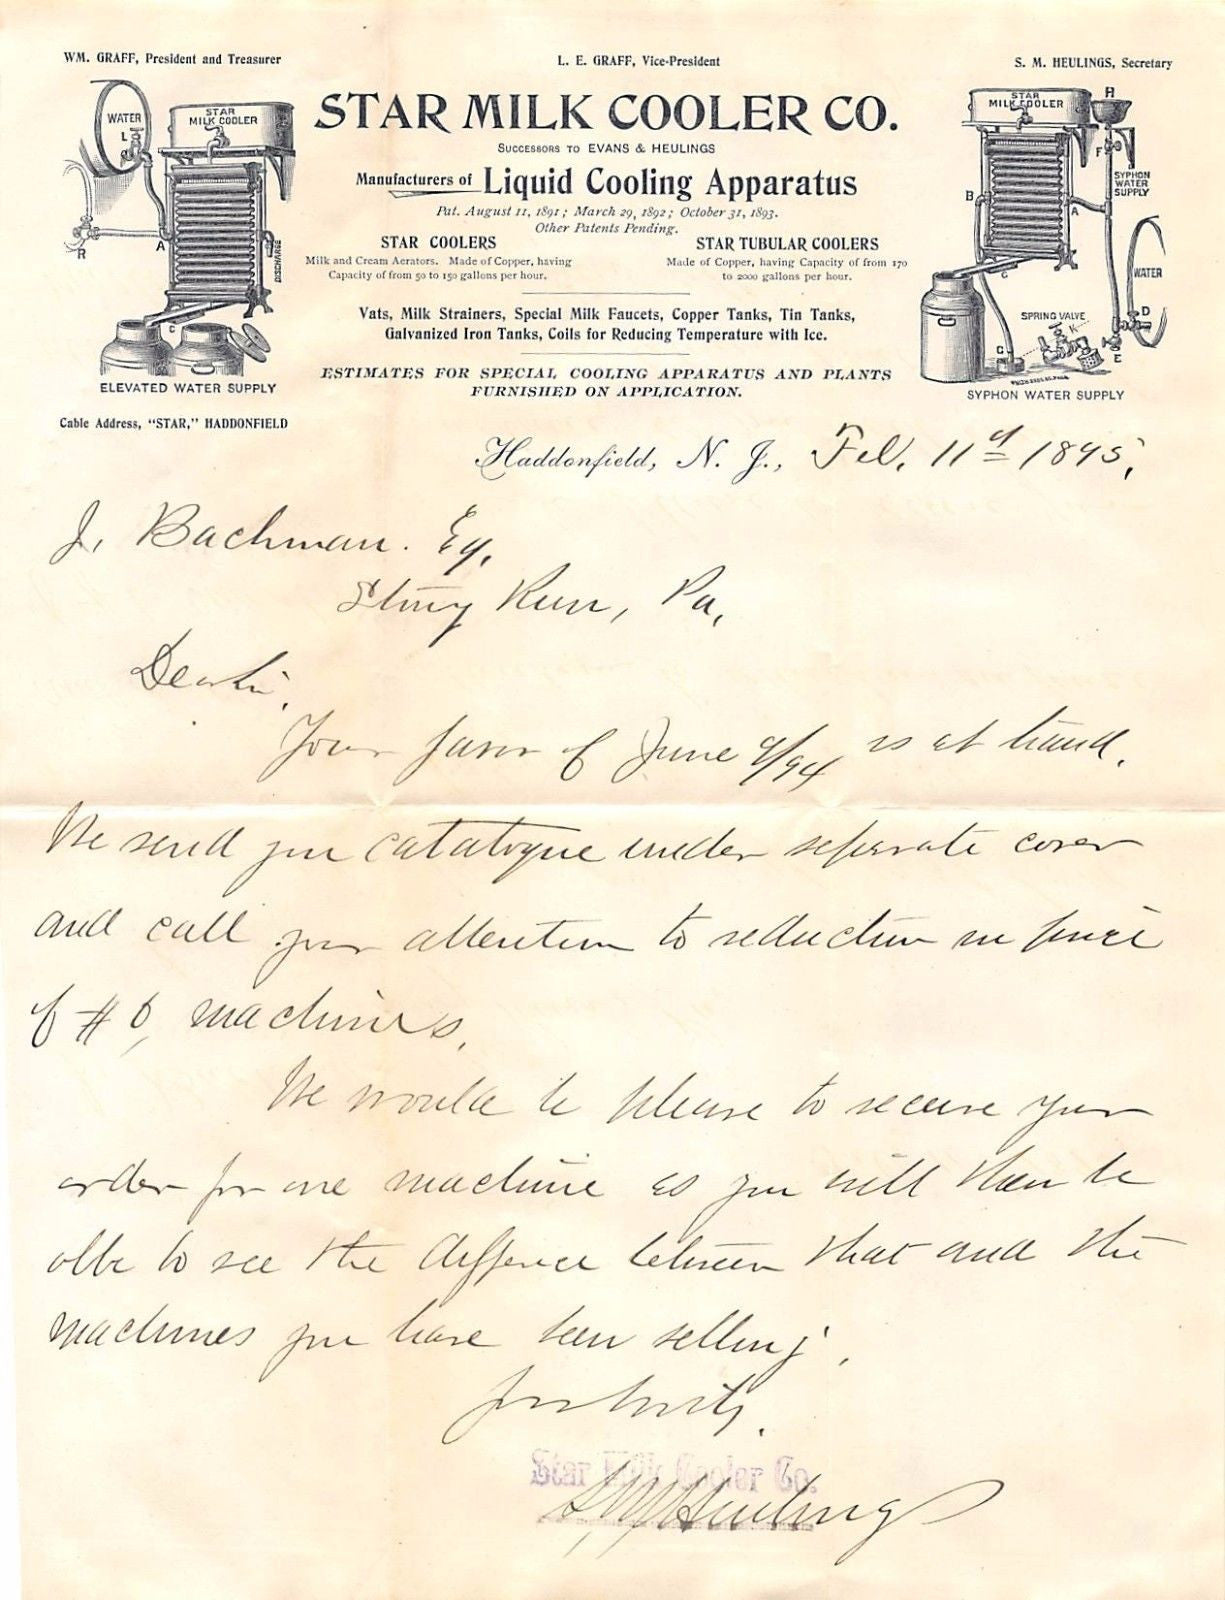 WM. GRAFF, President and Treasurer
L. E. GRAFF, Vice-President
S. M. HEULINGS, Secretary
STAR MILK COOLER CO.
SUCCESSORS TO EVANS & HEULINGS
Manufacturers of Liquid Cooling Apparatus
Pat. August 11, 1891; March 29, 1892; October 31, 1893.
Other Patents Pending.
STAR COOLERS
Milk and Cream Aerators. Made of Copper, having
Capacity of from 50 to 150 gallons per hour.
STAR TUBULAR COOLERS
Made of Copper, having Capacity of from 170
to 2000 gallons per hour.
Vats, Milk Strainers, Special Milk Faucets, Copper Tanks, Tin Tanks,
Galvanized Iron Tanks, Coils for Reducing Temperature with Ice.
ESTIMATES FOR SPECIAL COOLING APPARATUS AND PLANTS
FURNISHED ON APPLICATION.
WATER
L
STAR
MILK COOLER
R
A
DISCHARGE
C
ELEVATED WATER SUPPLY
Cable Address, "STAR," HADDONFIELD
STAR
MILK COOLER
H
F
SYPHON
WATER
SUPPLY
B
A
C
WATER
SPRING VALVE
K
D
C
E
SYPHON WATER SUPPLY
Haddonfield, N. J., Feb. 11th 1895,
J. Bachman. Esq.
Stony Run, Pa,
Dear Sir,
Your favor of June 9/94 is at hand.
We send you catalogue under separate cover
and call your attention to reduction in price
of # 6, machines.
We would be please to secure your
order for one machine as you will then be
able to see the difference between that and the
machines you have been selling.
Yours truly,
Star Milk Cooler Co.
S M Heulings